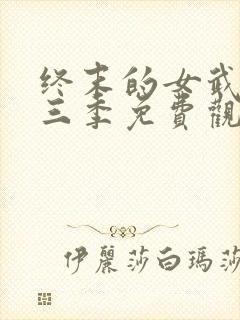 终末的女武
三季免費觀
伊麗莎白瑪莎